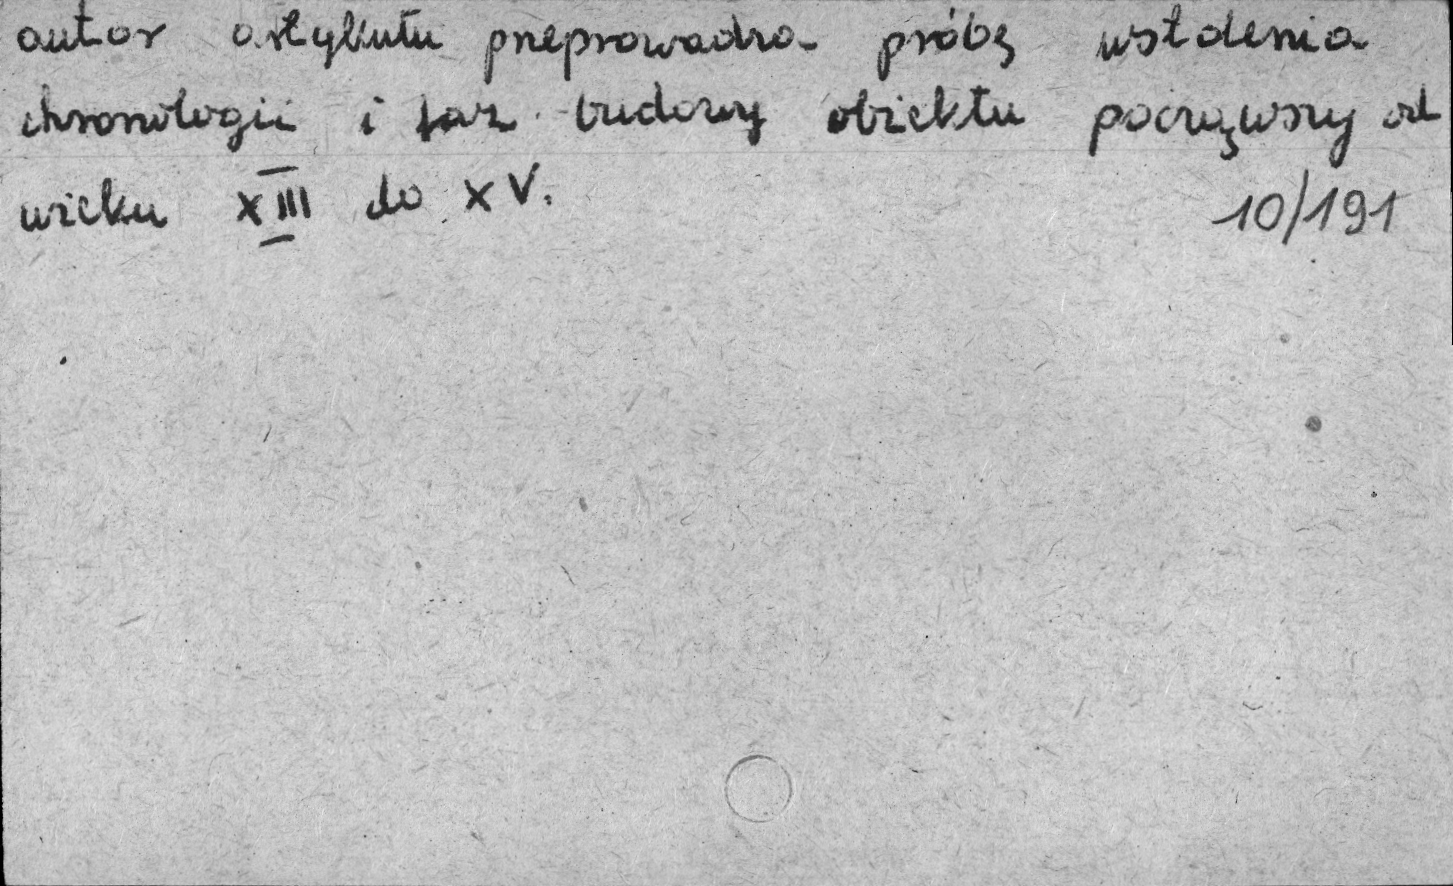 autor artykułu przeprowadza próbę ustalenia
chronologii i faz budowy obiektu począwszy od
wieku XIII do XV. 10/191